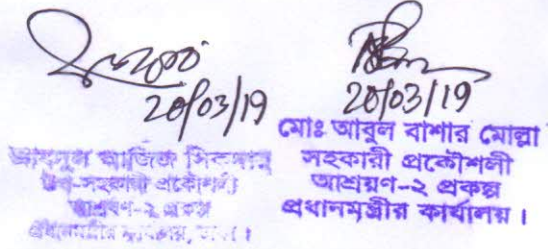 20/03/19
আজিজ সিকদার
উপ-সহকারী প্রকৌশলী
আশ্রয়ণ-২ প্রকল্প
প্রধানমন্ত্রীর কার্যালয়, ঢাকা।
20/03/19
মোঃ আবুল বাশার মোল্লা
সহকারী প্রকৌশলী
আশ্রয়ণ-২ প্রকল্প
প্রধানমন্ত্রীর কার্যালয়।